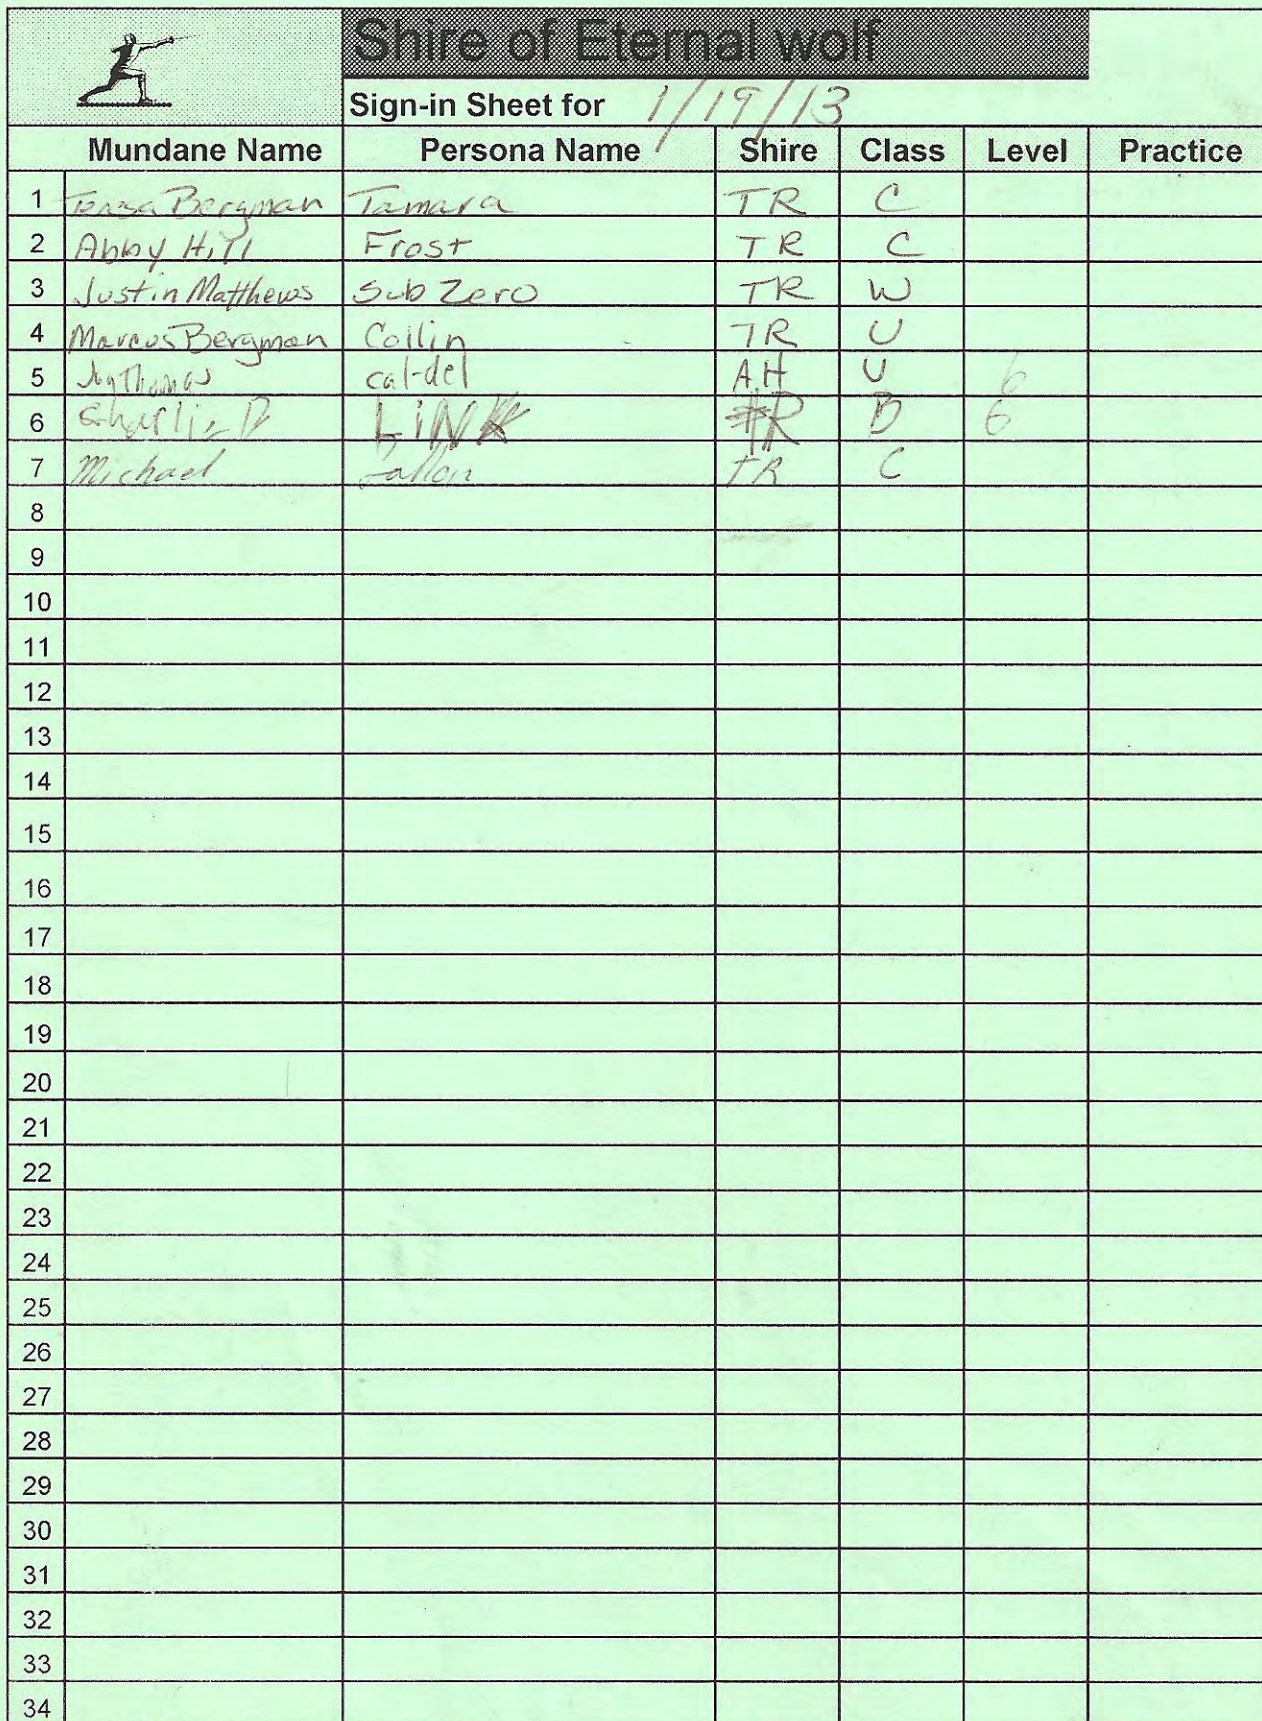 Shire of Eternal wolf
Sign-in Sheet for 1/19/13
Mundane Name Persona Name Shire Class Level Practice
1 Bergman Tamara TR C
2 Abby Hill Frost TR C
3 Justin Matthews Sub Zero TR W
4 Marcus Bergman Coilin TR U
5 Thomas cal-del A.H U 6
6 Charlie D LiNK R B 6
7 Michael TR C
8
9
10
11
12
13
14
15
16
17
18
19
20
21
22
23
24
25
26
27
28
29
30
31
32
33
34